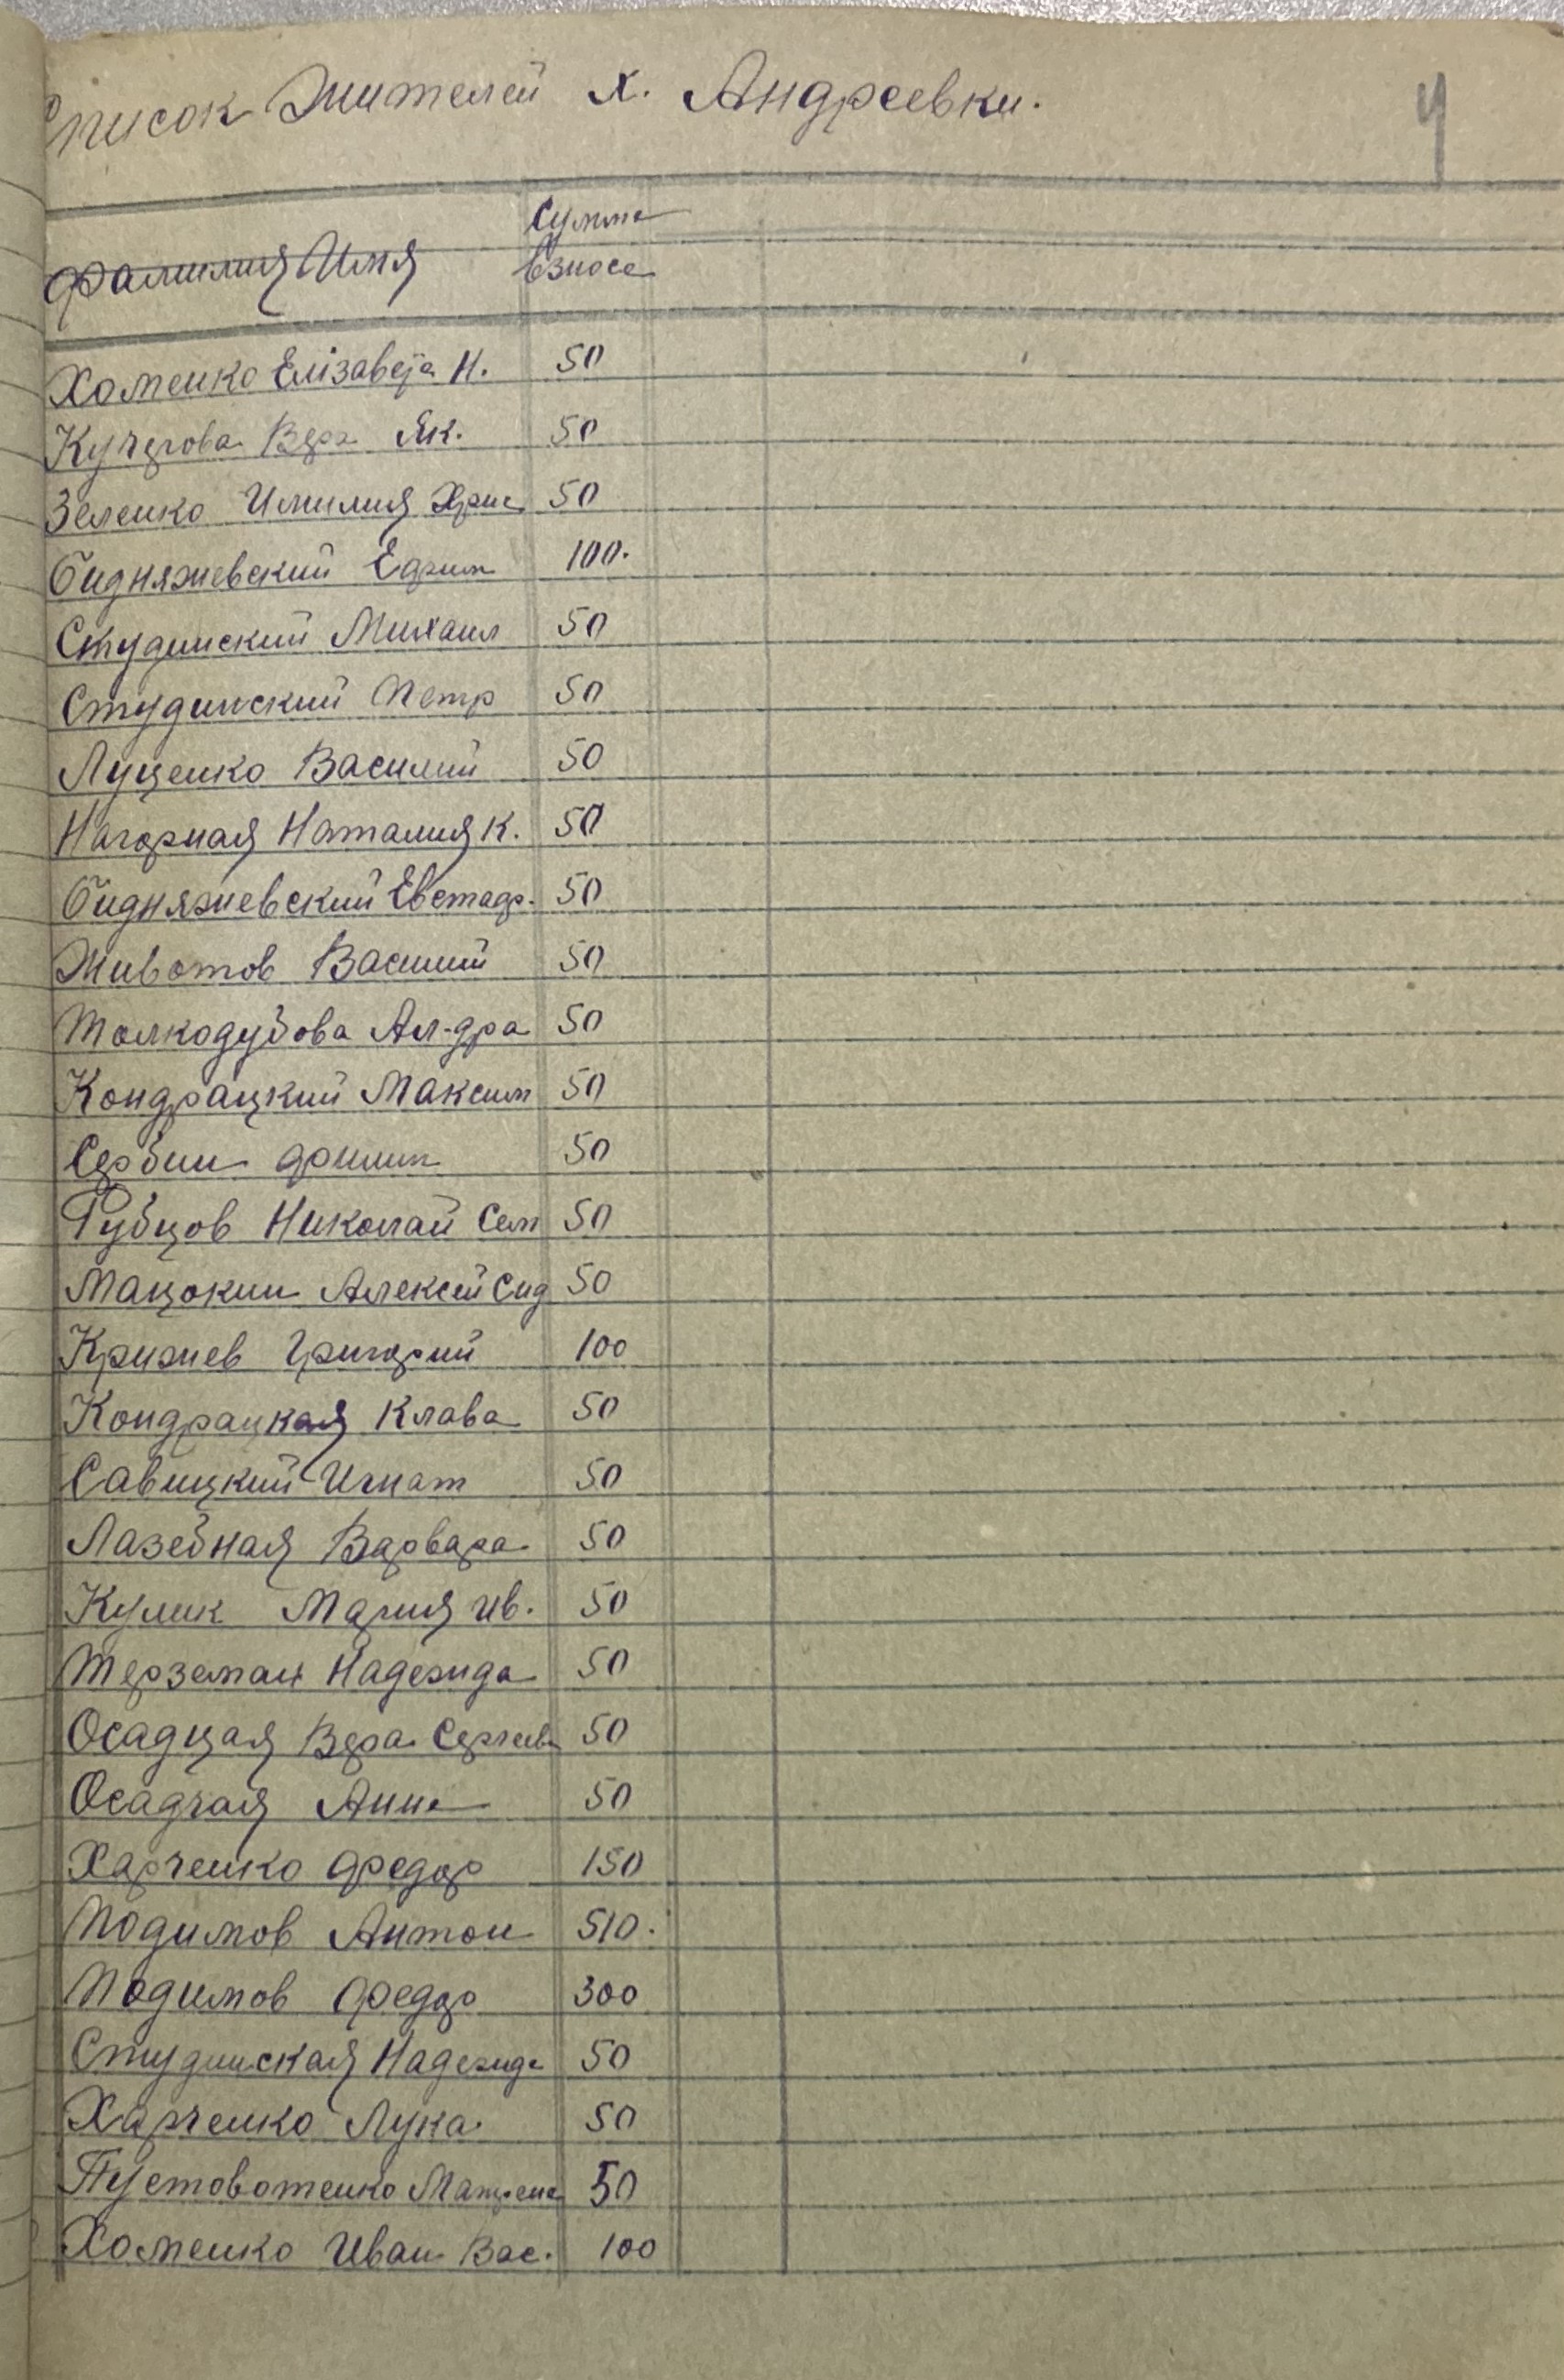 Список Жителей х. Андреевки.
4
Фамилия Имя
Сумма
Взноса
Хоменко Елізавета Н. 50
Кучерова Вера Як. 50
Зеленко Имилия Хрис 50
Бидняжевский Ефим 100.
Студинский Михаил 50
Студинский Петр 50
Луценко Василий 50
Нагорная Наталия К. 50
Бидняжевский Евстаф. 50
Животов Василий 50
Толкодубова Ал-дра 50
Кондрацкий Максим 50
Сербин Филип 50
Рубцов Николай Сем 50
Мацокин Алексей Сид 50
Крижев Григорий 100
Кондрацкая Клава 50
Савицкий Игнат 50
Лазебная Варвара 50
Кулик Мария Ив. 50
Терземан Надежда 50
Осадцая Вера Сергеев 50
Осадчая Анна 50
Харченко Федор 150
Подимов Антон 510.
Подимов Федор 300
Студинская Надежда 50
Харченко Лука 50
Пустовотенко Матрена 50
Хоменко Иван Вас. 100